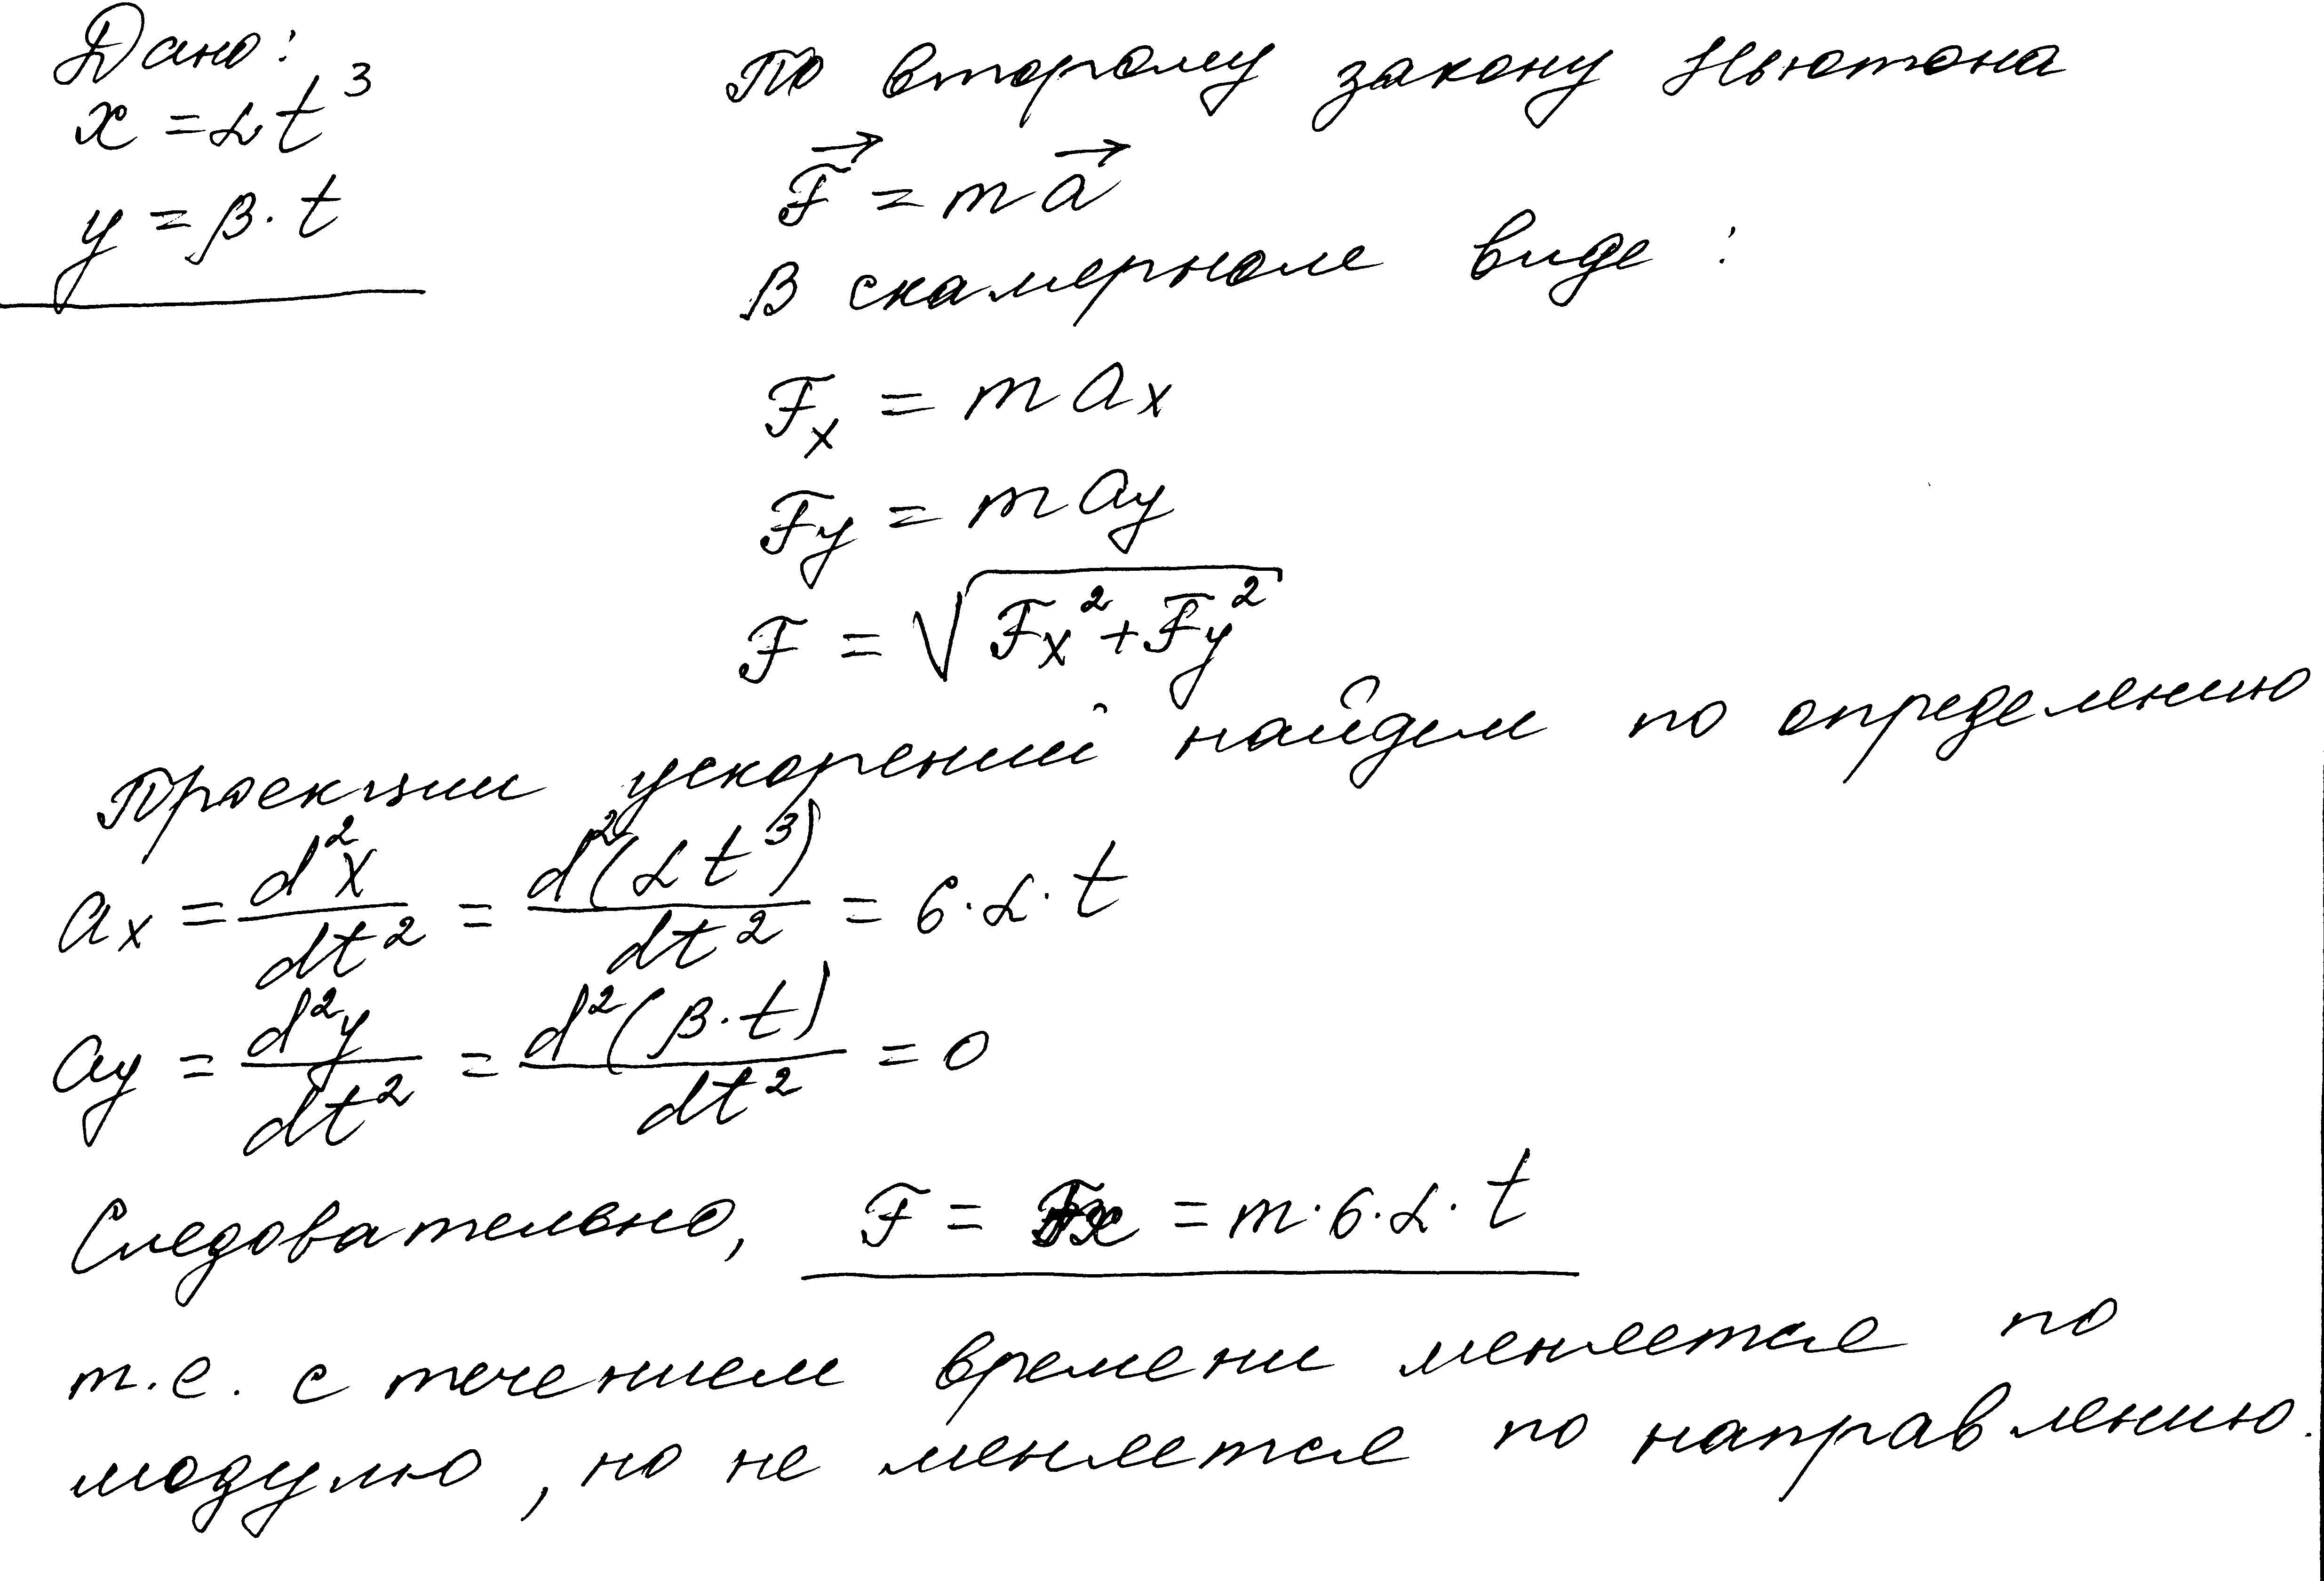 Дано:
x = αt³
y = β·t
По второму закону Ньютона
F⃗ = ma⃗
В скалярном виде:
Fₓ = maₓ
Fy = may
F = √(Fx² + Fy²)
Проекции ускорений найдем по определению
aₓ = d²x/dt² = d²(αt³)/dt² = 6·α·t
ay = d²y/dt² = d²(β·t)/dt² = 0
Следовательно, F = Fx = m·6·α·t
т.е. с течением времени меняется по
модулю, но не меняется по направлению.